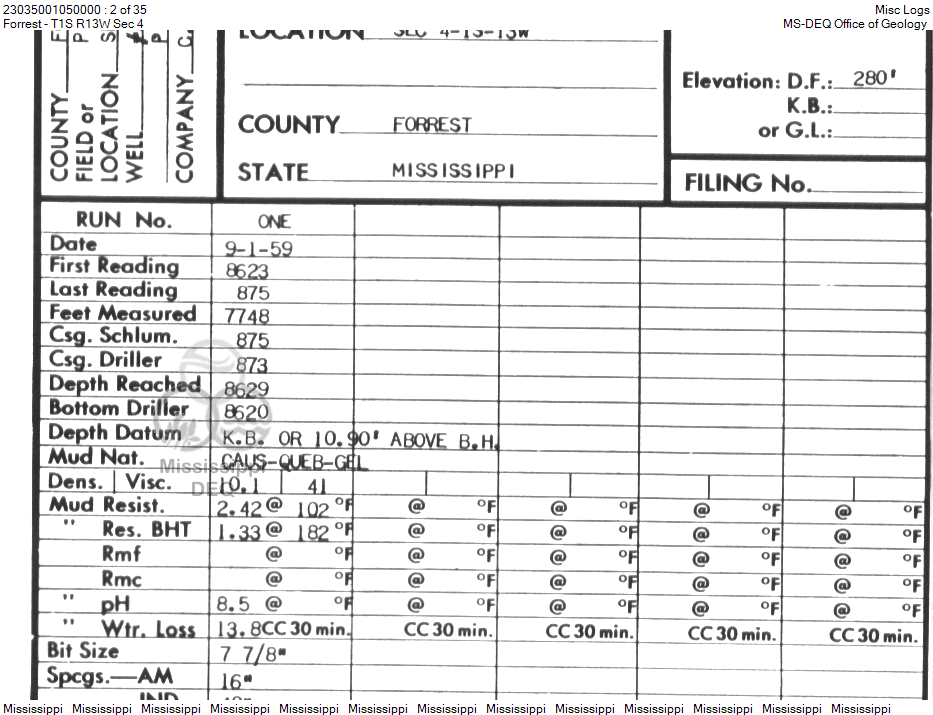 23035001050000 : 2 of 35 Misc Logs
Forrest - T1S R13W Sec 4 MS-DEQ Office of Geology
COUNTY F
FIELD or P
LOCATION S
WELL #
P
COMPANY C.
LOCATION SEC 4-1S-13W
COUNTY FORREST
STATE MISSISSIPPI
Elevation: D.F.: 280'
K.B.:
or G.L.:
FILING No.
RUN No. ONE
Date 9-1-59
First Reading 8623
Last Reading 875
Feet Measured 7748
Csg. Schlum. 875
Csg. Driller 873
Depth Reached 8629
Bottom Driller 8620
Depth Datum K.B. OR 10.90' ABOVE B.H.
Mud Nat. CAUS-QUEB-GEL
Mississippi
DEQ
Dens. | Visc. 10.1 41
Mud Resist. 2.42 @ 102 °F @ °F @ °F @ °F @ °F
" Res. BHT 1.33 @ 182 °F @ °F @ °F @ °F @ °F
Rmf @ °F @ °F @ °F @ °F @ °F
Rmc @ °F @ °F @ °F @ °F @ °F
" pH 8.5 @ °F @ °F @ °F @ °F @ °F
" Wtr. Loss 13.8 CC 30 min. CC 30 min. CC 30 min. CC 30 min. CC 30 min.
Bit Size 7 7/8"
Spcgs.—AM 16"
Mississippi Mississippi Mississippi Mississippi Mississippi Mississippi Mississippi Mississippi Mississippi Mississippi Mississippi Mississippi Mississippi